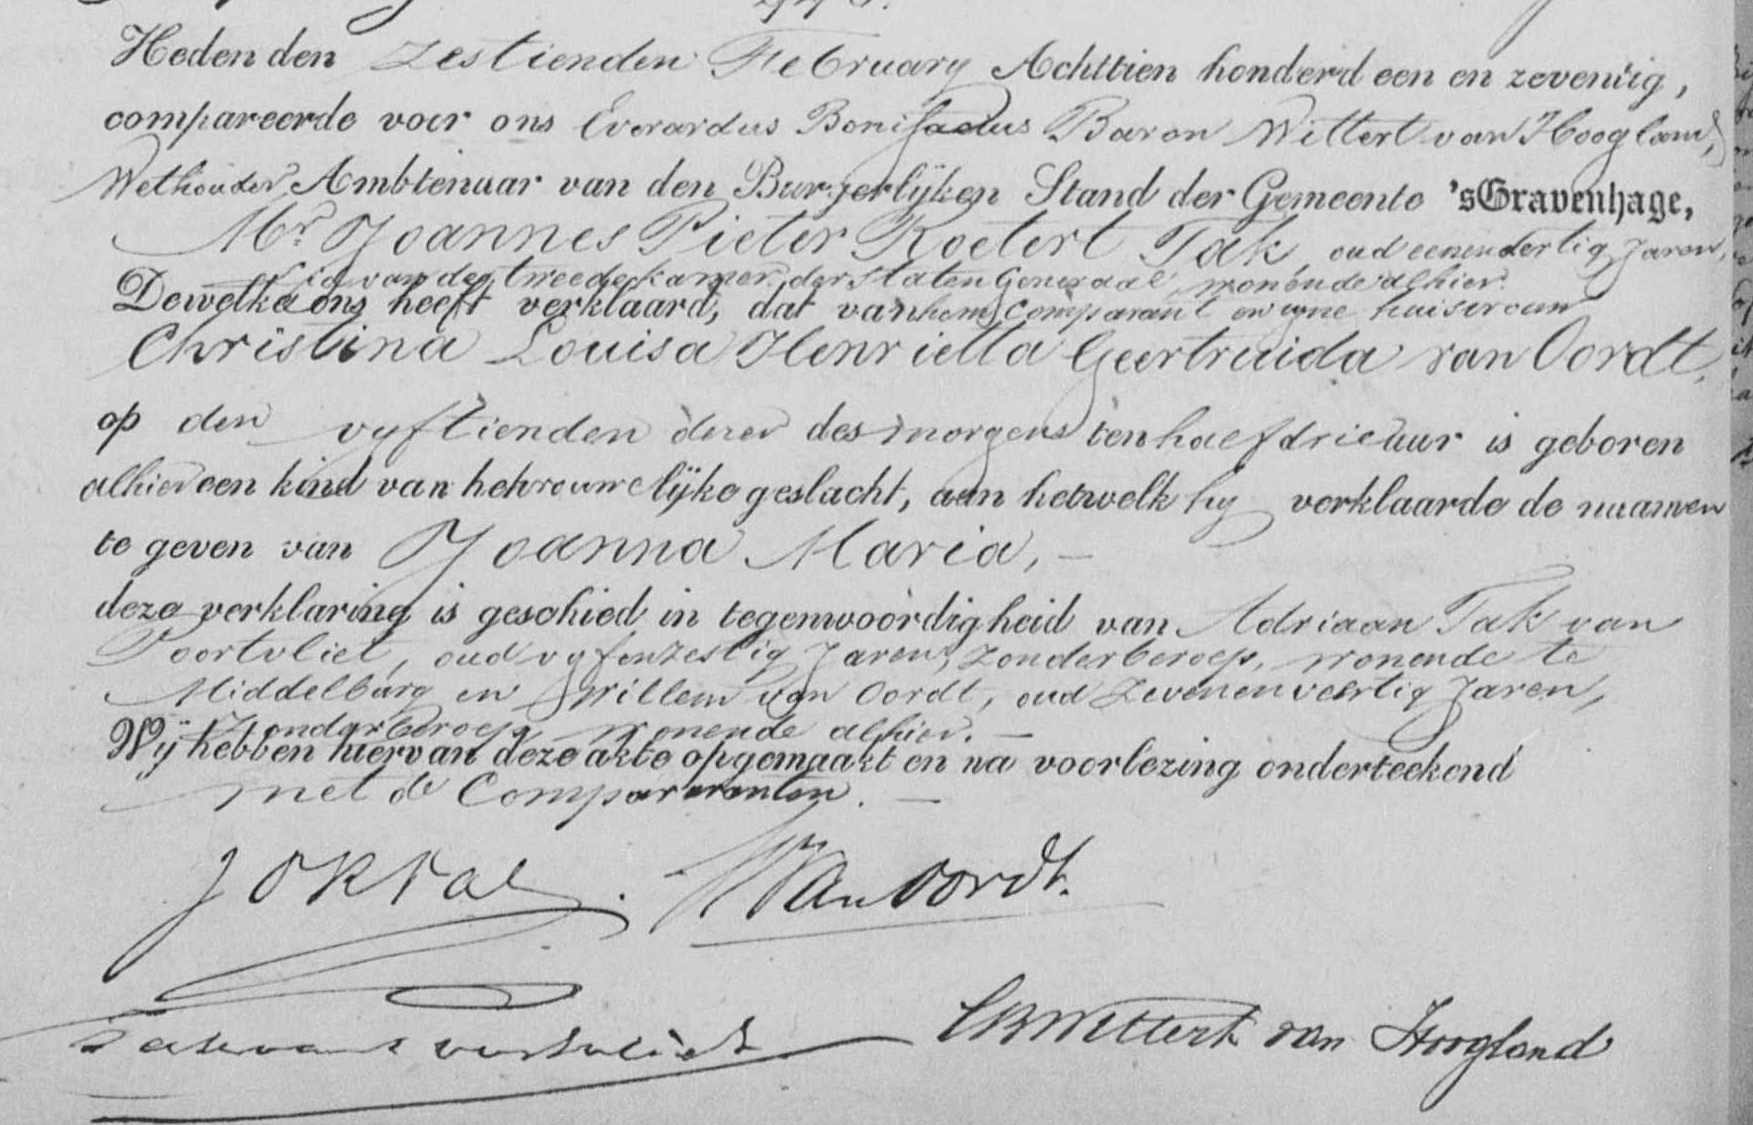 Heden den zestienden February Achttien honderd een en zeventig,
compareerde voor ons Everardus Bonifacius Baron Wittert van Hoogland,
Wethouder, Ambtenaar van den Burgerlijken Stand der Gemeente 'sGravenhage,
Mr. Joannes Pieter Roetert Tak oud eenendertig Jaren,
lid van de tweede kamer der Staten Generaal, wonende alhier.
Dewelke ons heeft verklaard, dat van hem Comparant en zyne huisvrouw
Christina Louisa Henrietta Geertruida van Oordt,
op den vyftienden dezer des morgens ten half drie uur is geboren
alhier een kind van het vrouwelijke geslacht, aan hetwelk hy verklaarde de naamen
te geven van Joanna Maria, —
deze verklaring is geschied in tegenwoordigheid van Adriaan Tak van
Poortvliet, oud vyfenzestig Jaren, zonder beroep, wonende te
Middelburg en Willem van Oordt, oud zevenenveertig Jaren,
Zonder beroep, wonende alhier. —
Wij hebben hiervan deze akte opgemaakt en na voorlezing onderteekend
met de Comparanten. —
JPRTak. WVanOordt.
Tak van Poortvliet EBWittert van Hoogland